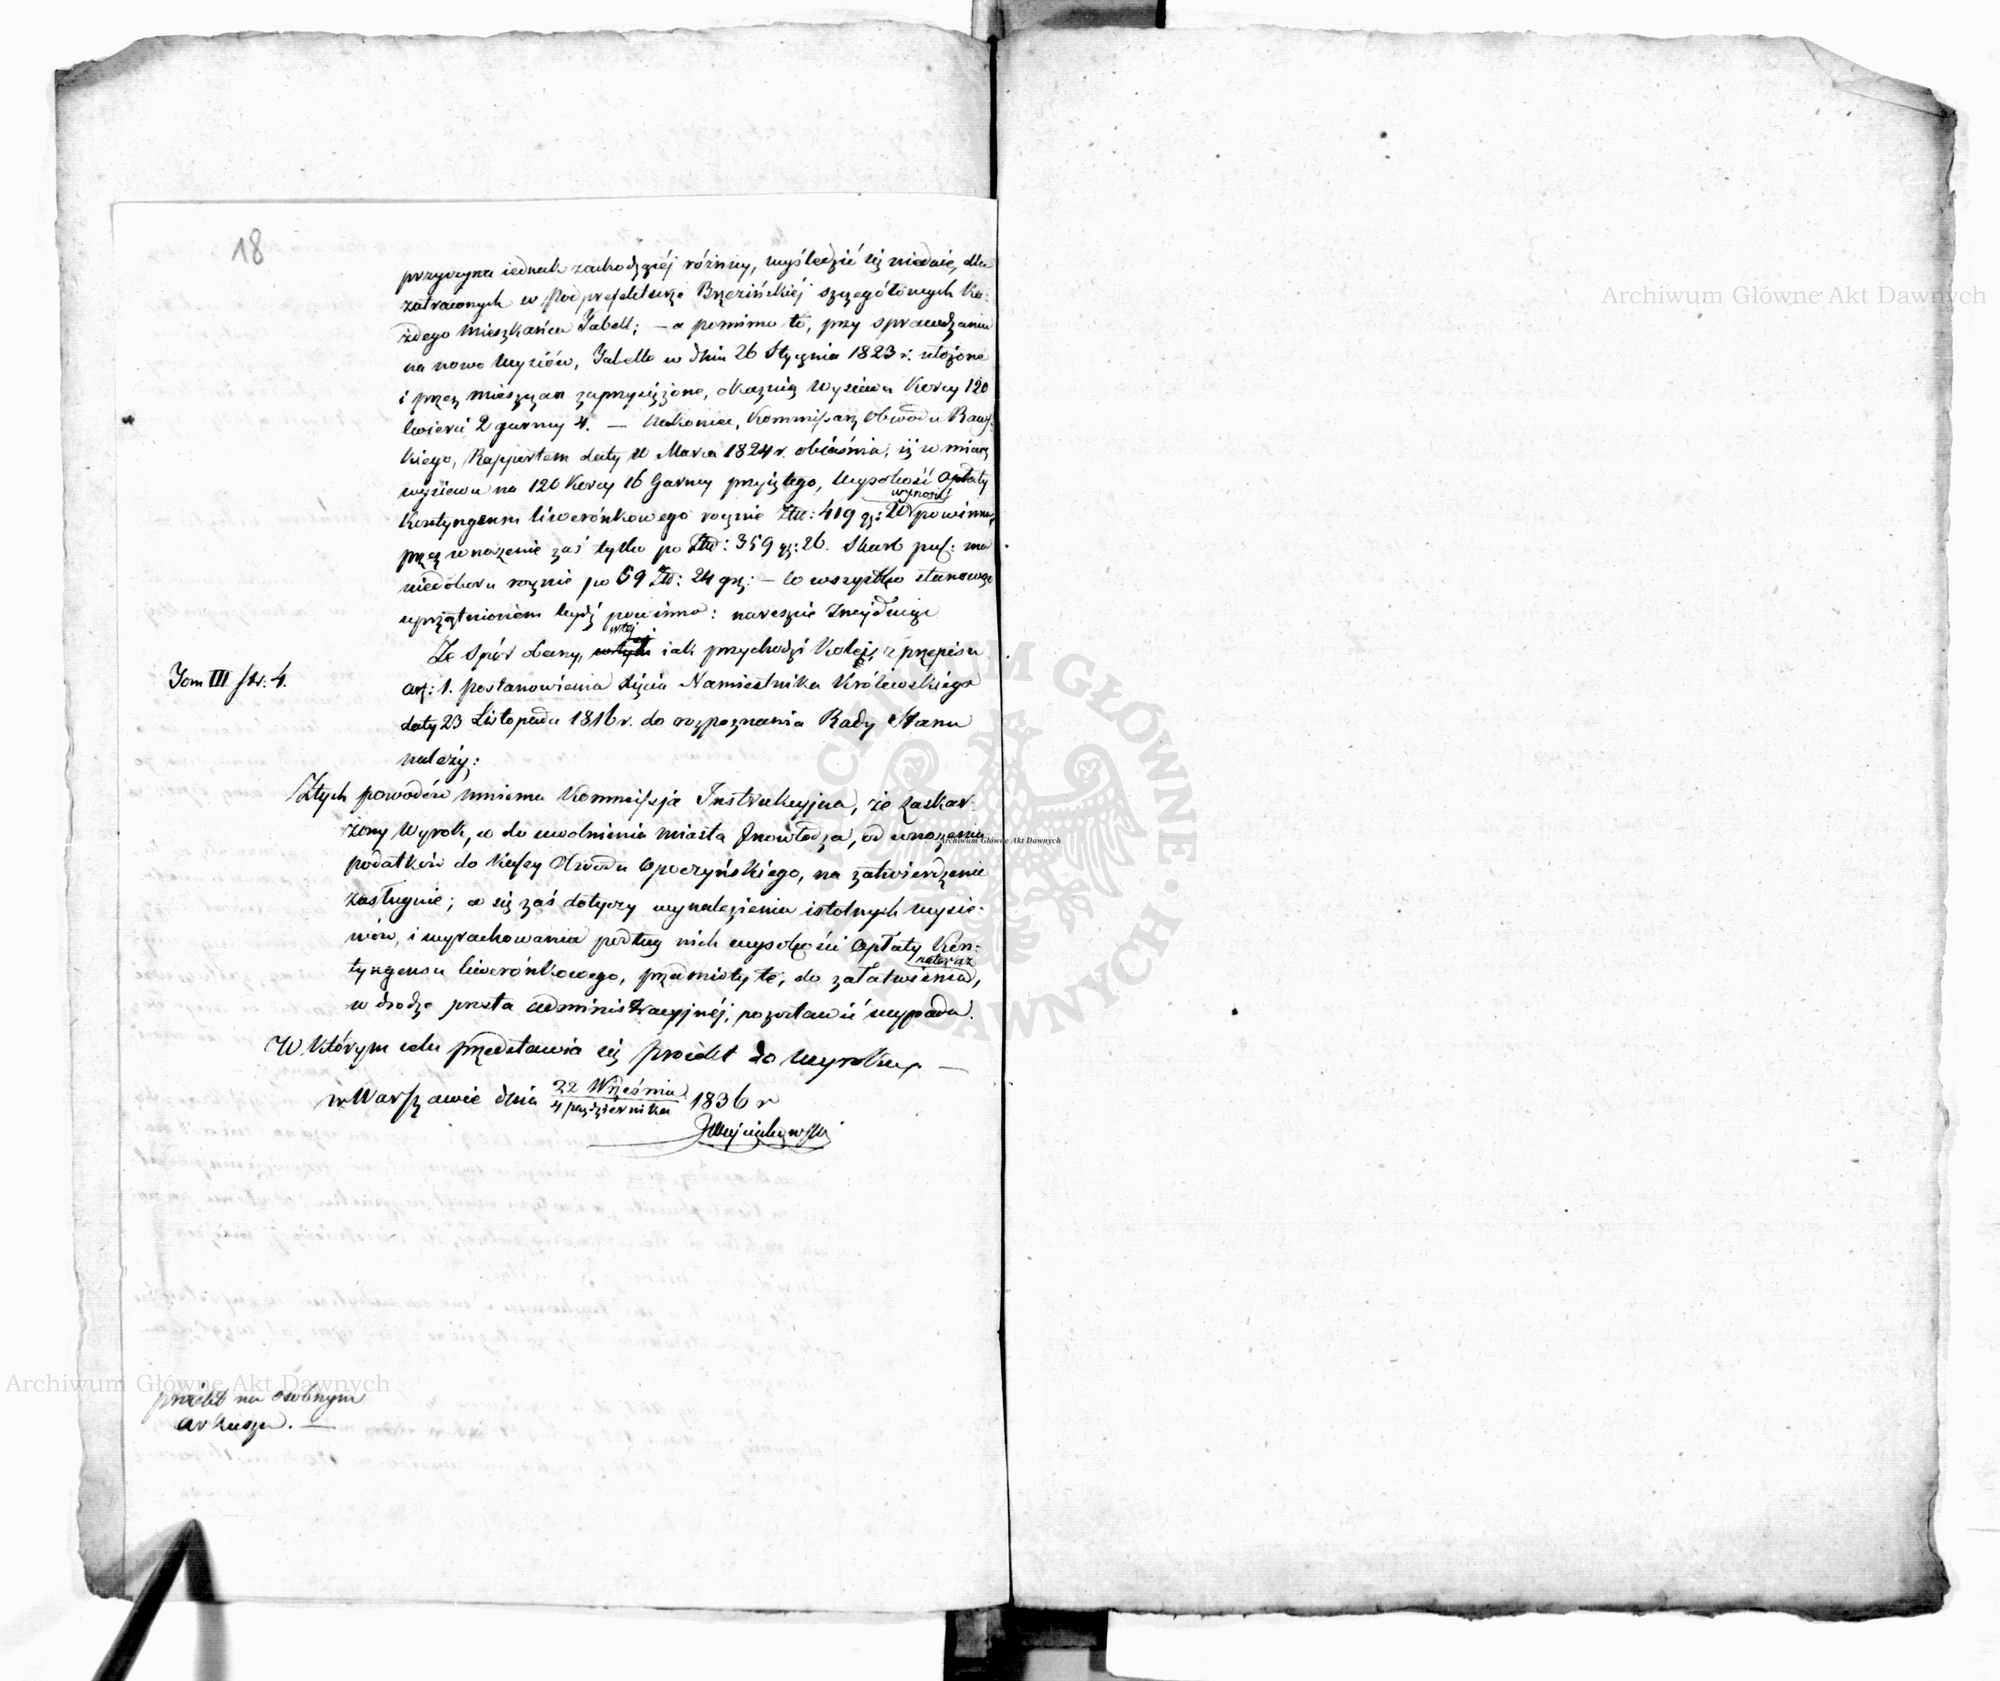 18
przyczyna iednak zachodzącéj różnicy, wyśledzić się niedaie, dla
zatraconych w Podprefekturze Brzezińskiéj szczegółowych ka-
żdego mieszkańca Tabell; — a pomimo to, przy sprawdzaniu
na nowo wysiéw, Tabella w dniu 26 Stycznia 1823 r. ułożona
i przez mieszczan zaprzysiężona, okazuią wysiewu Korcy 120
ćwierci 2 garncy 4. — Nakoniec, Kommissarz Obwodu Raws-
kiego, Rapportem daty 11 Marca 1824 r. obiaśnia, iż w miarę
wysiewu na 120 Korcy 16 Garncy przyiętego, wysokość opłaty
wynosić
Kontyngensu liwerónkowego rocznie Złt: 419 gr: 20 powinna,
przez wnoszenie zaś tylko po Złt: 359 gr: 26. Skarb pub: ma
niedoboru rocznie po 59 Złt: 24 gr: — Co wszystko stanowczo
uprzątnioném bydź powinno: nareszcie Znayduiąc
w téj
Że Spór obecny, iak przychodzi kolej, z przepisu
Tom III str. 4.
art: 1. postanowienia Xięcia Namiestnika Królewskiego
daty 23 Listopada 1816 r. do rozpoznania Rady Stanu
należy:
Z tych powodów mniema Kommissja Instrukcyjna, że zaskar-
żony Wyrok, co do uwolnienia miasta Inowłodza, od wnoszenia
podatków do Kassy Obwodu Opoczyńskiego, na zatwierdzenie
zasługuie; co się zaś dotyczy wynalezienia istotnych wysie-
wów, i wyrachowania podług nich wysokości Opłaty Kon-
natéraz
tyngensu liwerónkowego, przedmioty te, do załatwienia,
w drodze prosta administracyjnéj, pozostawić wypada.
W którym celu przedstawia się proiekt do wyroku. —
w Warszawie dnia 22 Września / 4 października 1836 r
Archiwum Główne Akt Dawnych
Archiwum Główne Akt Dawnych
Archiwum Główne Akt Dawnych
ARCHIWUM GŁÓWNE AKT DAWNYCH
proiekt na osobnym
arkuszu. —